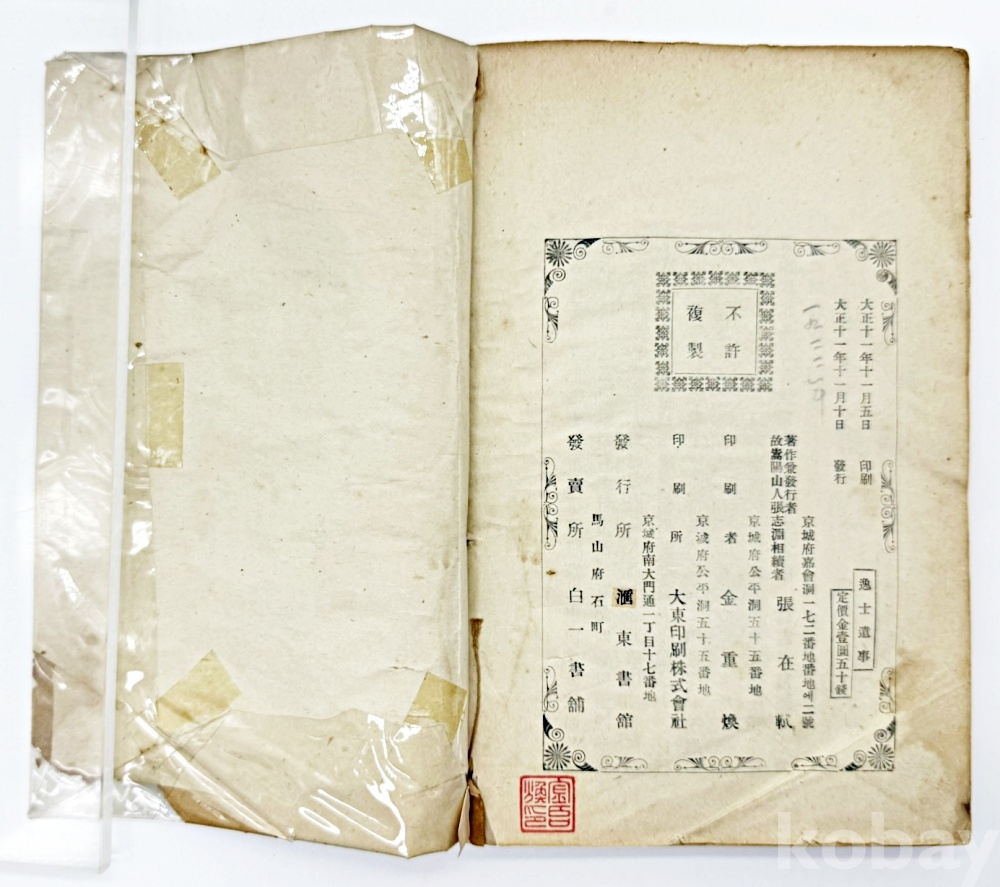 不許
複製
大正十一年十一月五日 印刷
大正十一年十一月十日 發行
逸士遺事
定價金壹圓五十錢
京城府嘉會洞一七二番地番地에二號
著作兼發行者
故嵩陽山人張志淵相續者
張在軾
京城府公平洞五十五番地
印刷者 金重煥
京城府公平洞五十五番地
印刷所 大東印刷株式會社
京城府南大門通一丁目十七番地
發行所 滙東書舘
馬山府石町
發賣所 白一書舖
kobay